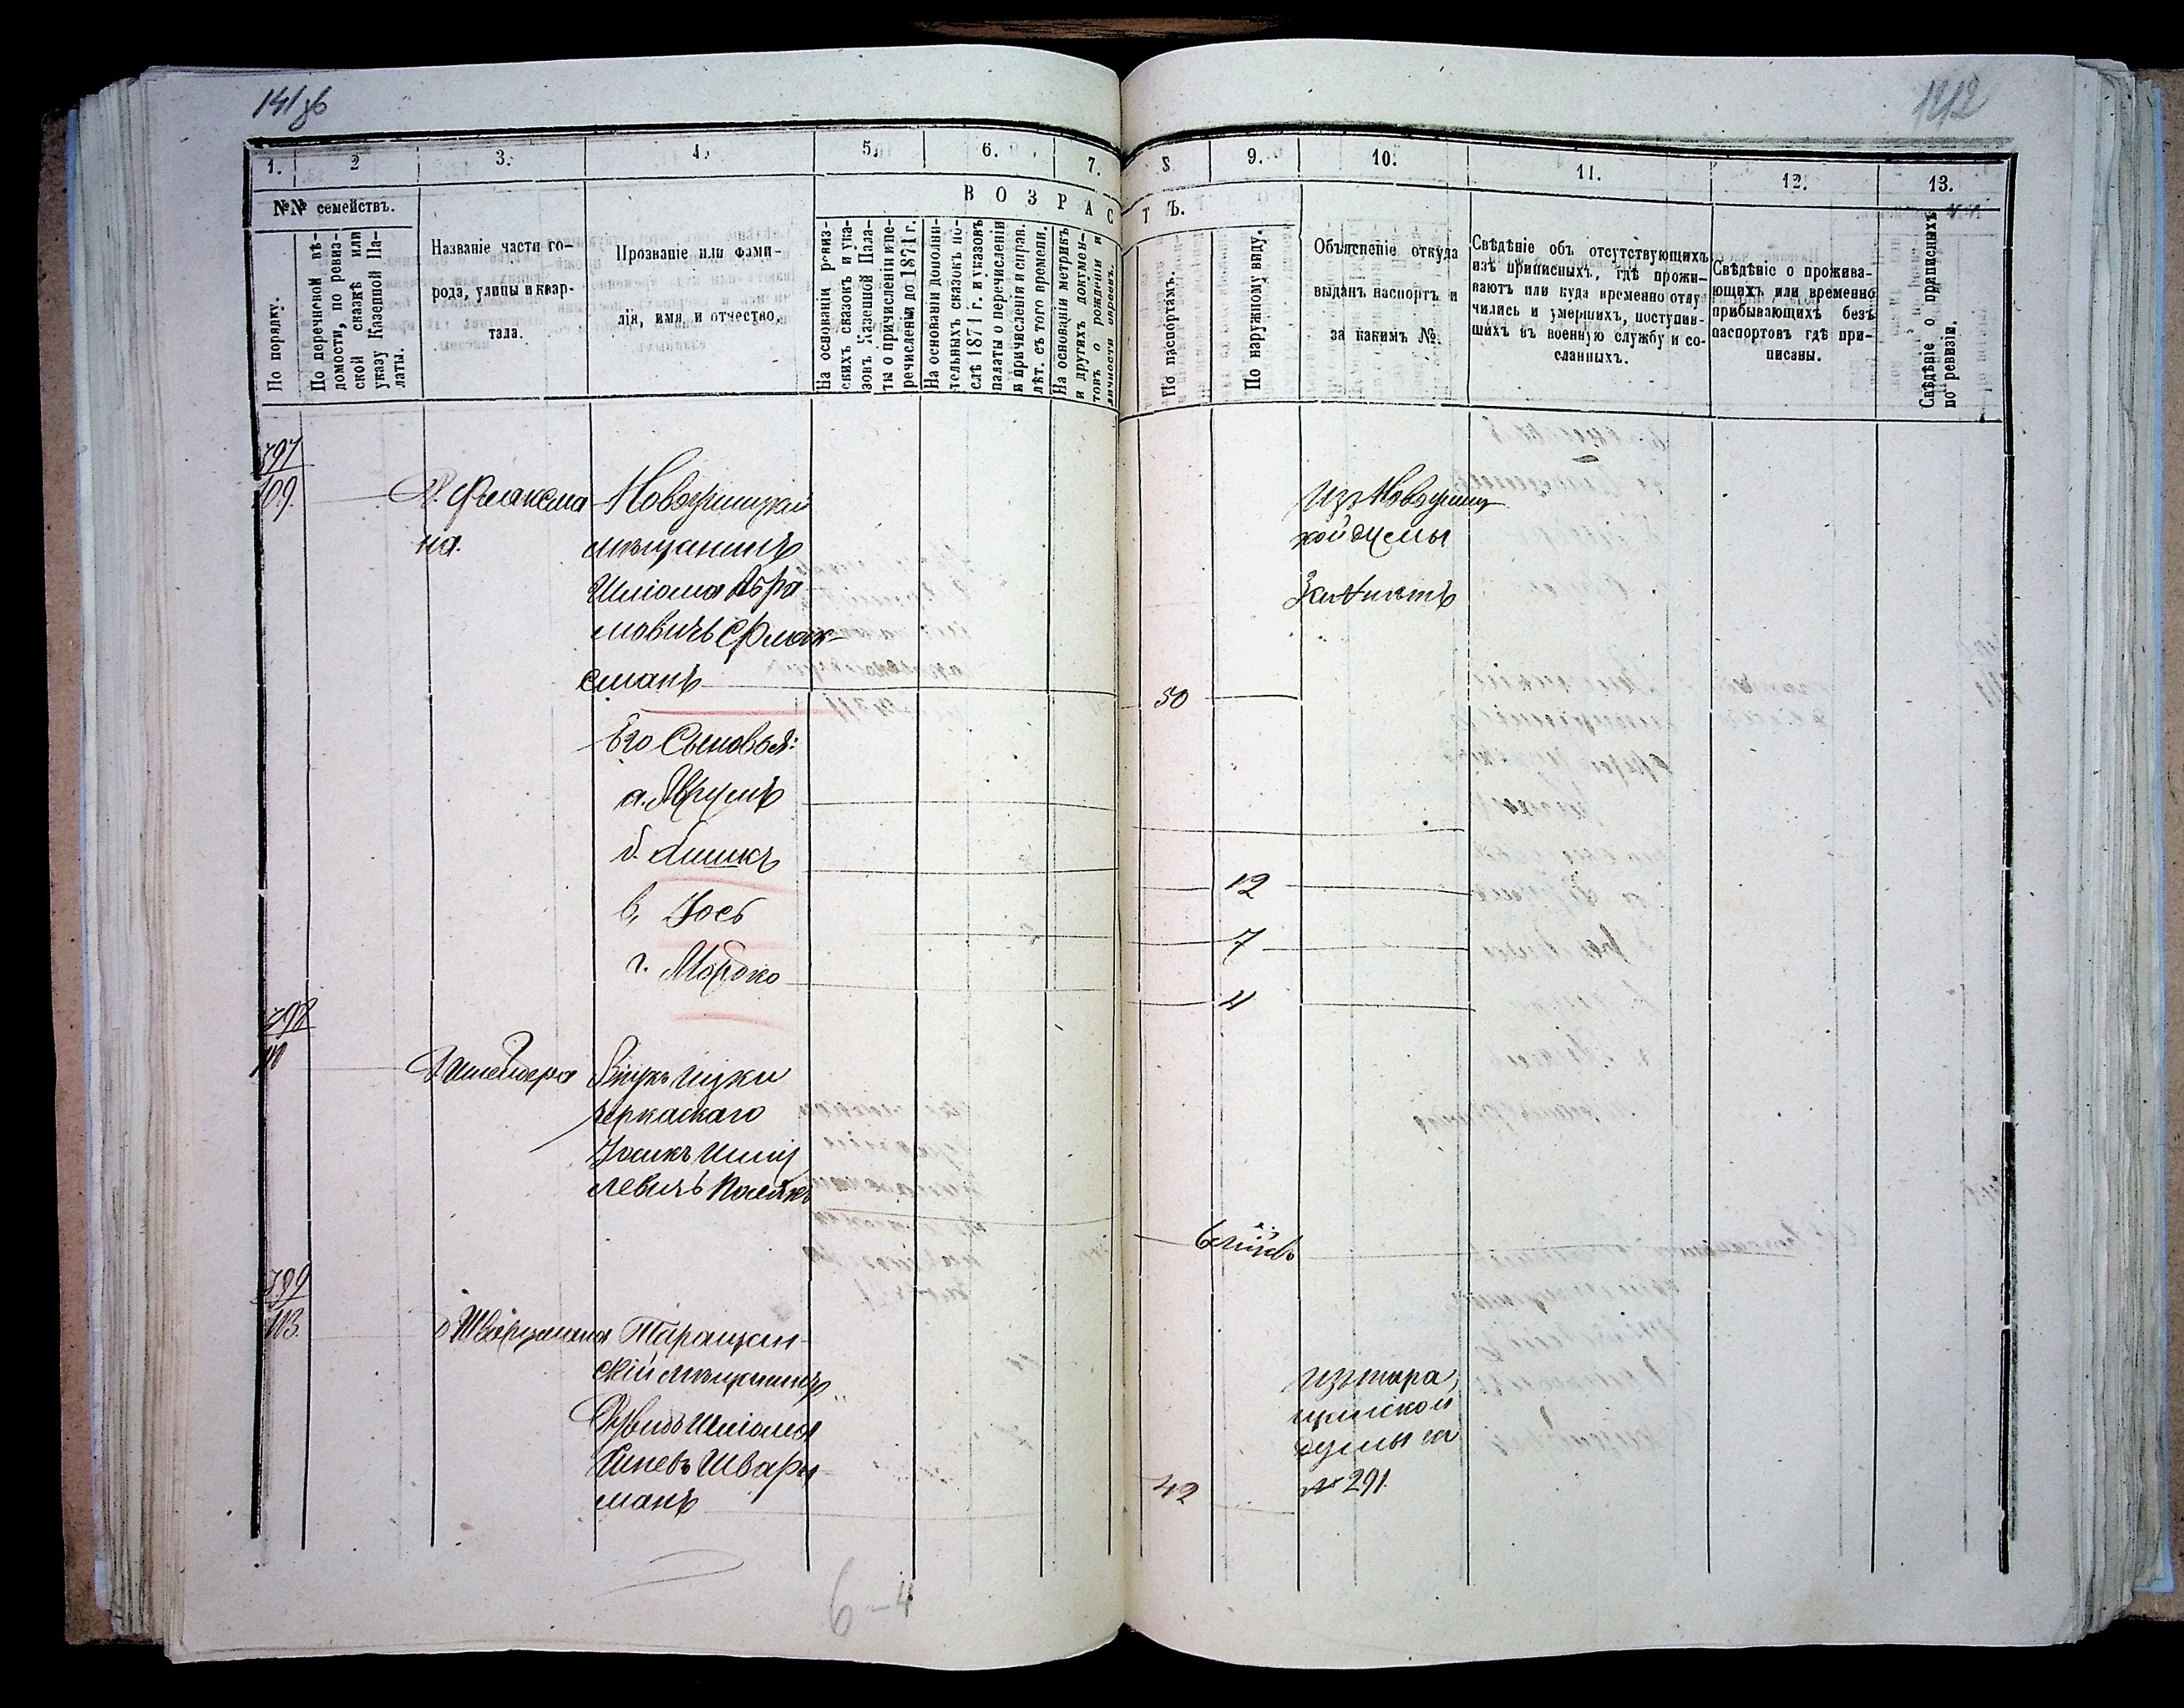 141 зб
142
1.
2
3.
4.
5.
6.
7.
8.
9.
10.
11.
12.
13.
№№ семействъ.
В О З Р А С Т Ъ.
По порядку.
По перечневой вѣ-
домости, по ревиз-
ской сказкѣ или
указу Казенной Па-
латы.
Названіе части го-
рода, улицы и квар-
тала.
Прозваніе или фами-
лія, имя и отчество.
На основаніи ревиз-
скихъ сказокъ и ука-
зовъ Казенной Пала-
ты о причисленіи и пе-
речисленіи до 1871 г.
На основаніи дополни-
тельныхъ сказокъ по-
слѣ 1871 г. и указовъ
палаты о перечисленіи
и причисленіи и справ.
лѣт. съ того времени.
На основаніи метрикъ
и другихъ докумен-
товъ о рожденіи и
личности евреевъ.
По паспортамъ.
По наружному виду.
Объясненіе откуда
выданъ паспортъ и
за какимъ №.
Свѣдѣніе объ отсутствующихъ
изъ приписныхъ, гдѣ прожи-
ваютъ или куда временно отлу-
чились и умершихъ, поступив-
шихъ въ военную службу и со-
сланныхъ.
Свѣдѣніе о прожива-
ющихъ или временно
прибывающихъ безъ
паспортовъ гдѣ при-
писаны.
Свѣдѣніе о приписныхъ
по ревизіи.
397
109.
Д. Флаксма
на.
Новоушицкій
мѣщанинъ
Шліома Абра
мовичъ Флак-
сманъ
50
Изъ Новоушиц
кой думы
Его Сыновья:
а.
б.
12
в, Іось
7
г. Мордко
4
398
Д. Шнейдера
Внукъ Ицки
Черкаскаго
Іосикъ Шму
левичъ
6
399
113.
д Шварцмана
Таращан-
скій мѣщанинъ
Давидъ Шліома
Шварц
манъ
42
Изъ тара
щанской
думы за
№ 291.
6-4